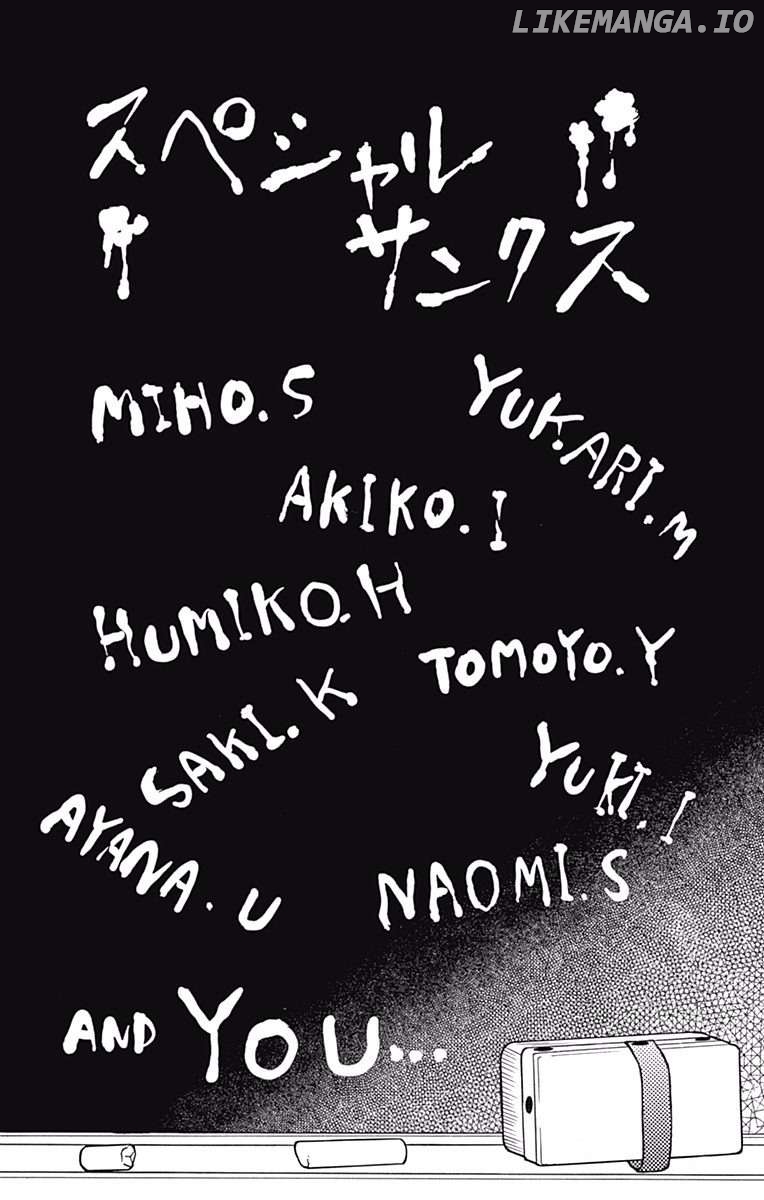 LIKEMANGA.IO
スペシャル
サンクス
MIHO.S
YUKARI.M
AKIKO.I
HUMIKO.H
TOMOYO.Y
SAKI.K
YUKI.I
AYANA.U
NAOMI.S
AND YOU...